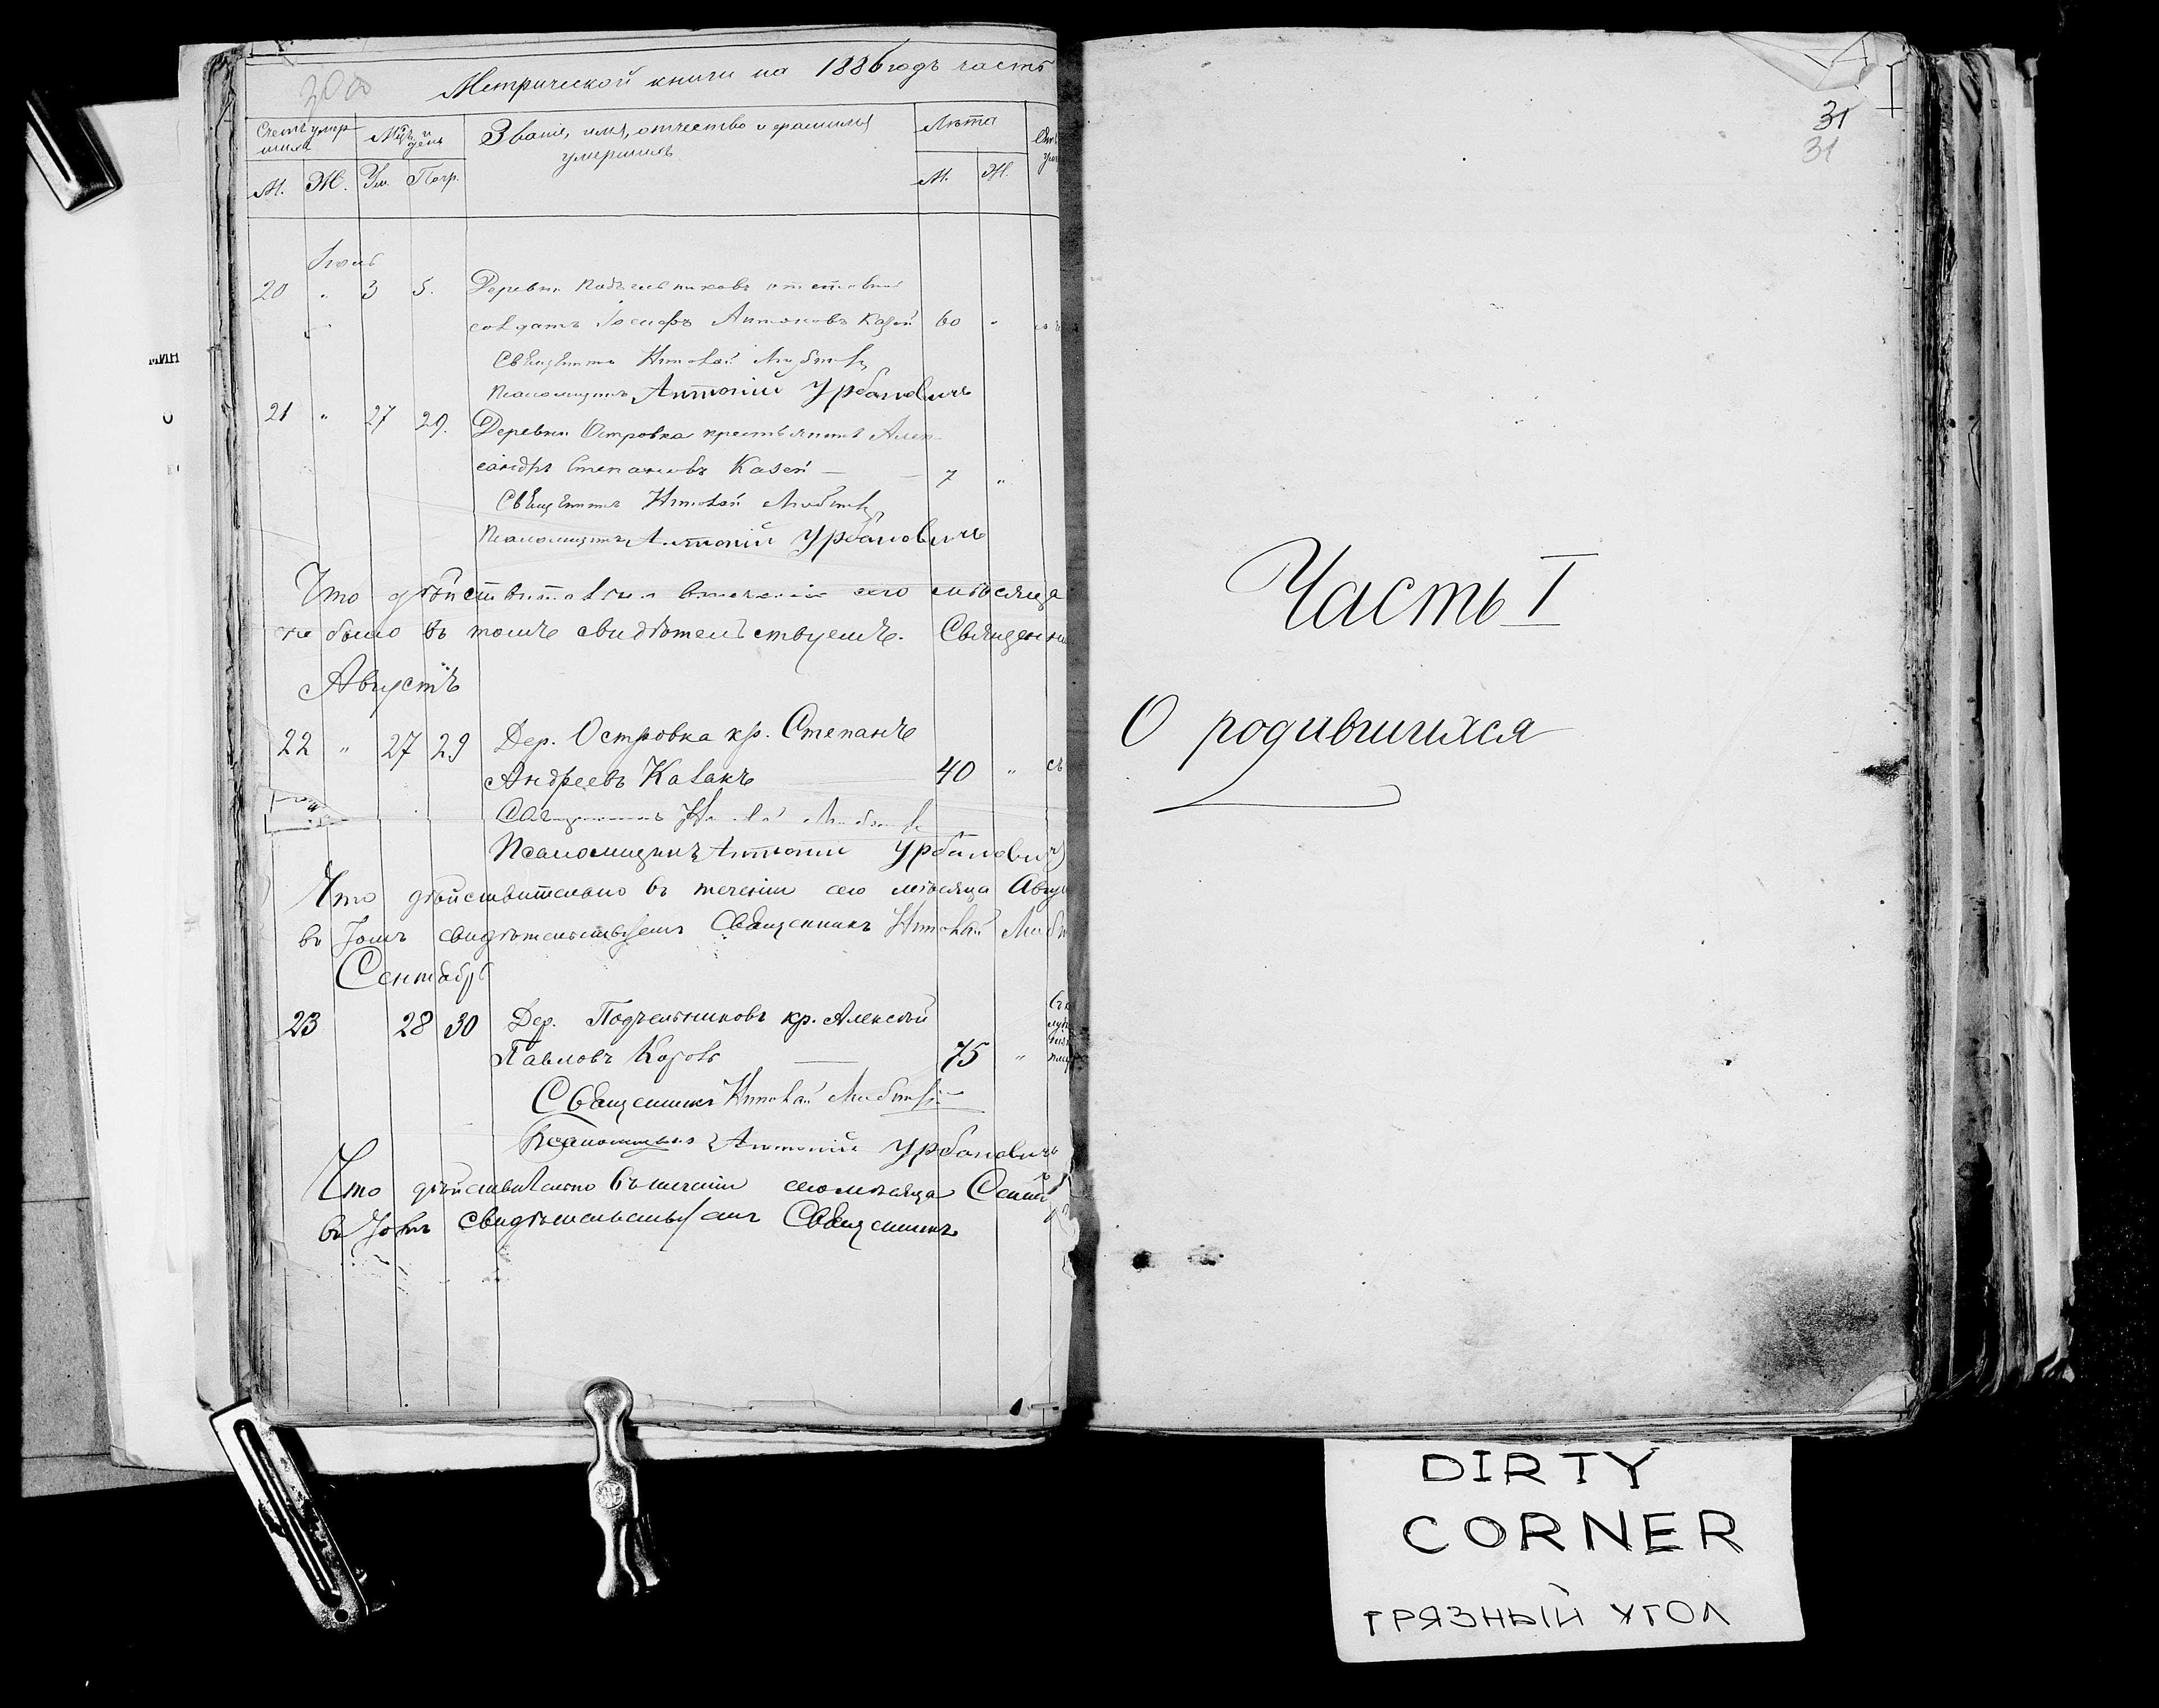 Метрической книги на 1886 годъ часть
Счетъ умер
шихъ
Мцъ и
день
Званіе, имя, отчество и фамилія
умершихъ
Лѣта
М. Ж. Ум. Погр. М. Ж.
Іюль
20 " 3 5. Деревни Подъельниковъ отставной
солдатъ Іосифъ Антоновъ 60 "
Священникъ
Псаломщикъ Антоній Урбановичъ
21 " 27 29. Деревни Островка крестьянинъ Алек
сандръ Степановъ 7 "
Священникъ
Псаломщикъ Антоній Урбановичъ
Что дѣйствительно сего мѣсяца
не было въ томъ свидѣтельствуемъ. Священни
Августъ
22 " 27 29 Дер. Островка кр. Степанъ
Андреевъ Казакъ 40 "
Священникъ
Псаломщикъ Антоній Урбановичъ
Что дѣйствительно въ теченіи сего мѣсяца Авгу
въ томъ свидѣтельствуемъ Священникъ
Сентябрь
23 28 30 Дер. Подъельниковъ кр. Алексѣй
Павловъ 75 "
Священникъ
Псаломщикъ Антоній Урбановичъ
Что дѣйствительно въ теченіи сего мѣсяца Сент
въ томъ свидѣтельствуемъ Священникъ
31
31
Часть I
О родившихся
DIRTY
CORNER
ГРЯЗНЫЙ УГОЛ